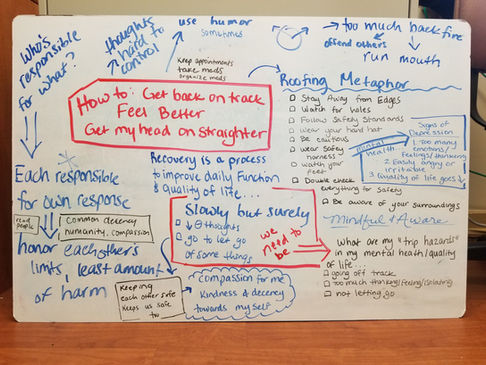 Who's
responsible
for what?
thoughts
hard to
control
use humor
sometimes
too much back fire
offend others
run mouth
Keep appointments
take meds
organize meds
How to: Get back on track
Feel Better
Get my head on straighter
Roofing Metaphor
Stay Away from Edges
Watch for Holes
Follow Safety Standards
Wear your hard hat
Be cautious
wear safety
harness
watch your
feet
Double check
everything for safety
Be aware of your surroundings
mental
health
Signs of
Depression
1. too many
emotions/
feelings/thinking
2. Easily angry or
irritable
3. Quality of life goes ↓
Recovery is a process
to improve daily function
& quality of life...
Each responsible
for own response
read
people
Common decency
humanity, compassion
honor each other's
limits, least amount
of harm
Slowly but surely
thoughts
go to let go
of some things
we
need to
be
Mindful & Aware
What are my "trip hazards"
in my mental health/quality
of life...
going off track
too much thinking/feeling/isolating
not letting go
Keeping
each other safe
Keeps us safe
too
compassion for me
Kindness & decency
towards myself